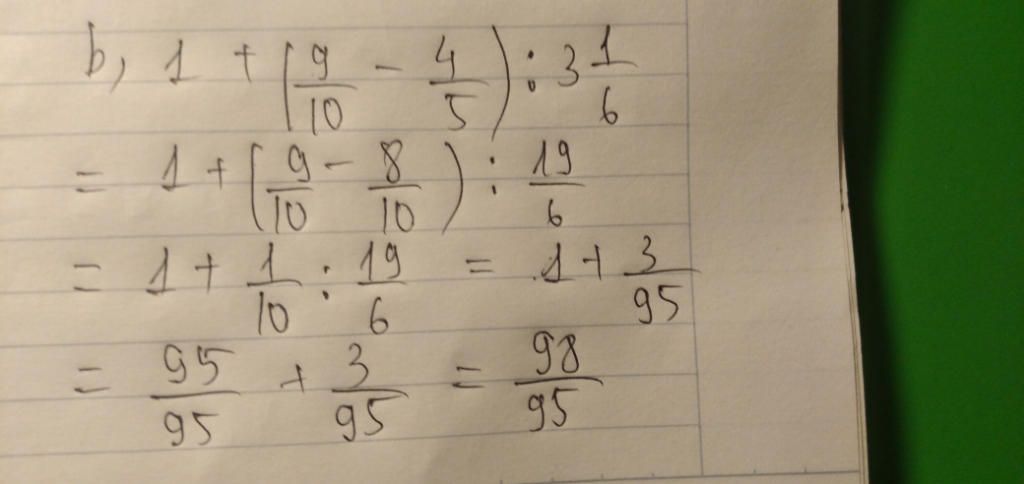 b, 1 + (9/10 - 4/5) : 3 1/6
= 1 + (9/10 - 8/10) : 19/6
= 1 + 1/10 : 19/6 = 1 + 3/95
= 95/95 + 3/95 = 98/95